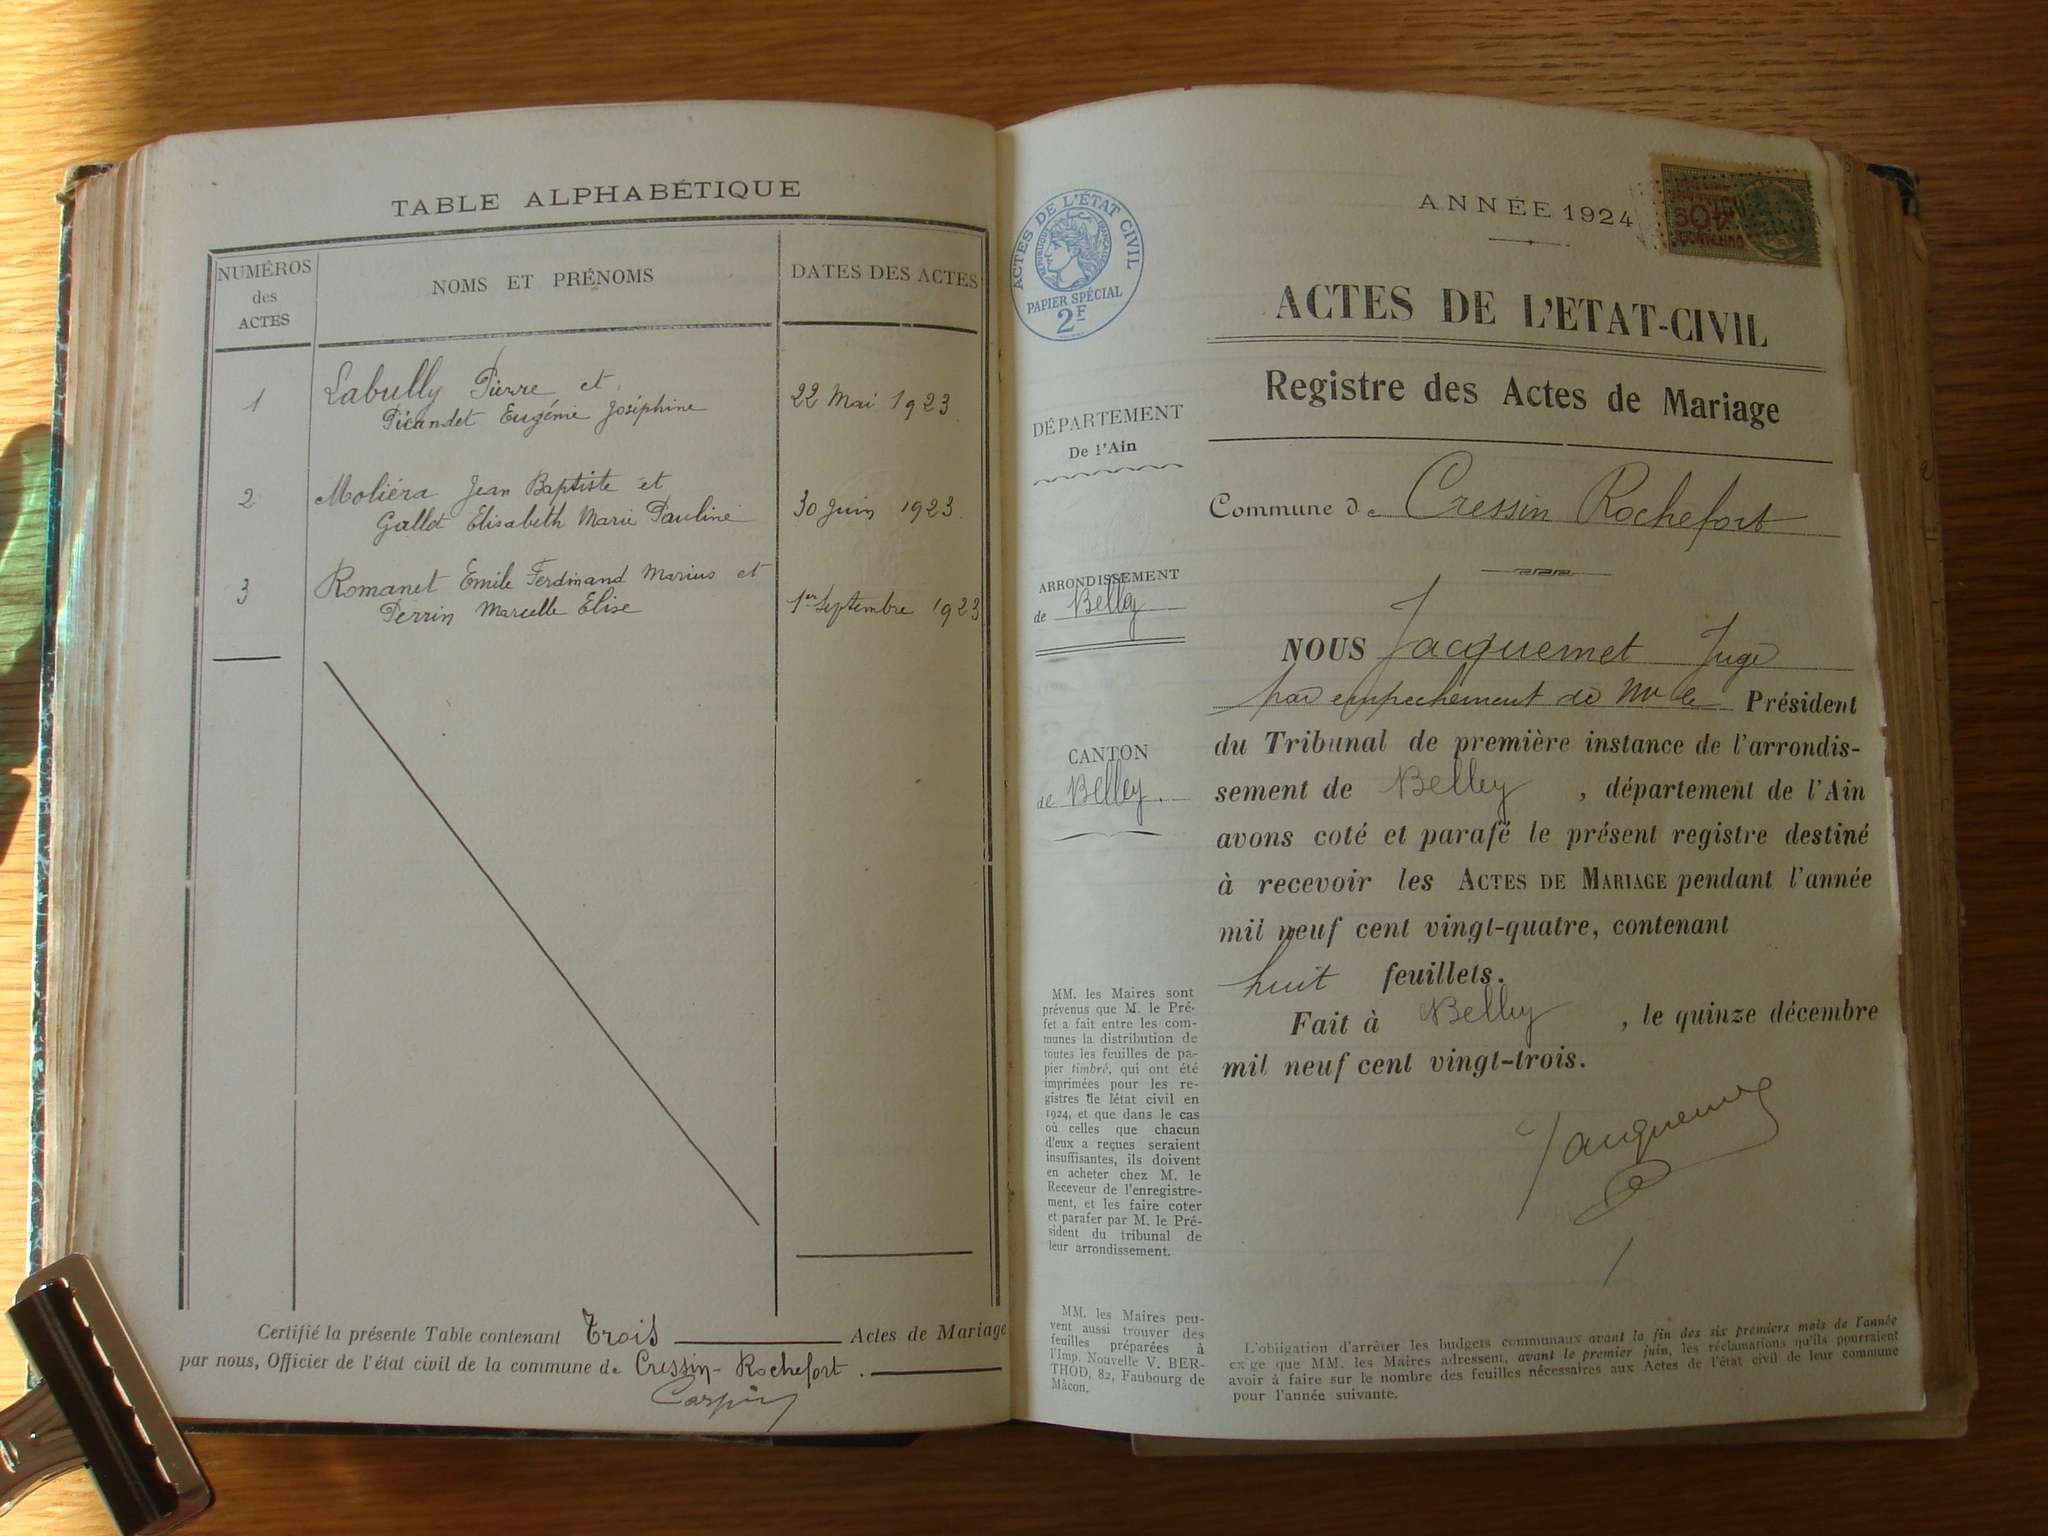 TABLE ALPHABÉTIQUE
NUMÉROS
des
ACTES
NOMS ET PRÉNOMS
DATES DES ACTES
1
Labully Pierre et
Picandet Eugénie Joséphine
22 Mai 1923.
2
Moliéra Jean Baptiste et
Gallet Elisabeth Marie Pauline
30 Juin 1923.
3
Romanet Emile Ferdinand Marius et
Perrin Marcelle Elise
1er Septembre 1923
Certifié la présente Table contenant Trois Actes de Mariage
par nous, Officier de l'état civil de la commune de Cressin-Rochefort.
ACTES DE L'ÉTAT CIVIL
RÉPUBLIQUE FRANÇAISE
PAPIER SPÉCIAL
2F
DÉPARTEMENT
De l'Ain
ARRONDISSEMENT
de Belley
CANTON
de Belley.
MM. les Maires sont
prévenus que M. le Pré-
fet a fait entre les com-
munes la distribution de
toutes les feuilles de pa-
pier timbré, qui ont été
imprimées pour les re-
gistres de létat civil en
1924, et que dans le cas
où celles que chacun
d'eux a reçues seraient
insuffisantes, ils doivent
en acheter chez M. le
Receveur de l'enregistre-
ment, et les faire coter
et parafer par M. le Pré-
sident du tribunal de
leur arrondissement.
MM. les Maires peu-
vent aussi trouver des
feuilles préparées à
l'Imp. Nouvelle V. BER-
THOD, 82, Faubourg de
Mâcon.
ANNÉE 1924
ACTES DE L'ETAT-CIVIL
Registre des Actes de Mariage
Commune de Cressin Rochefort
NOUS Jacquemet Juge
par empechement de Mr le Président
du Tribunal de première instance de l'arrondis-
sement de Belley, département de l'Ain
avons coté et parafé le présent registre destiné
à recevoir les ACTES DE MARIAGE pendant l'année
mil neuf cent vingt-quatre, contenant
huit feuillets.
Fait à Belley, le quinze décembre
mil neuf cent vingt-trois.
Jacquemet
L'obligation d'arrêter les budgets communaux avant la fin des six premiers mois de l'année
exige que MM. les Maires adressent, avant le premier juin, les réclamations qu'ils pourraient
avoir à faire sur le nombre des feuilles nécessaires aux Actes de l'état civil de leur commune
pour l'année suivante.